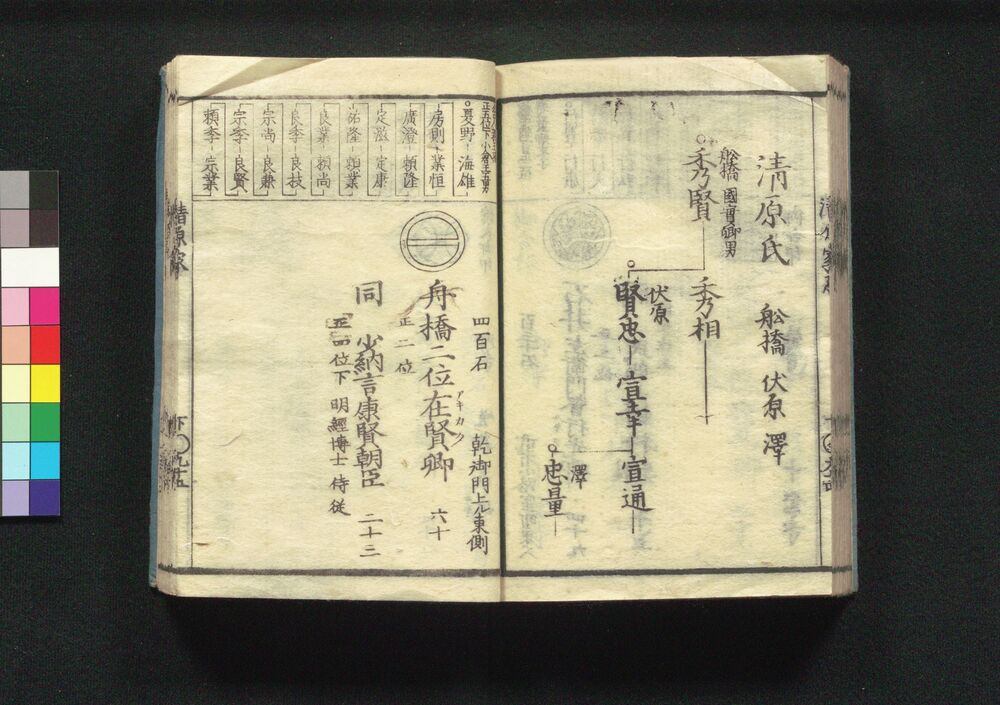 清原氏
舩橋 伏原 澤
舩橋 國賢卿男
秀賢
秀相
伏原
賢忠 宣幸 宣通
澤
忠量
夏野 海雄
房則 業恒
廣澄 頼隆
定滋 定康
祐隆 頼業
良業 頼尚
良季 良枝
宗尚 良兼
宗季 良賢
頼季 宗業
四百石
乾御門上ル東側
舟橋二位在賢卿 六十
アキカタ
正二位
同 少納言康賢朝臣 二十三
正四位下 明經博士 侍従
清原家
下
九十五